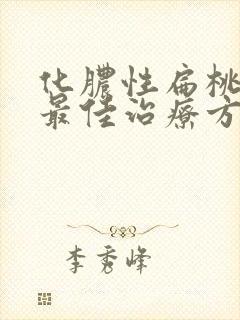 化脓性扁桃
最佳治疗方
李秀峰